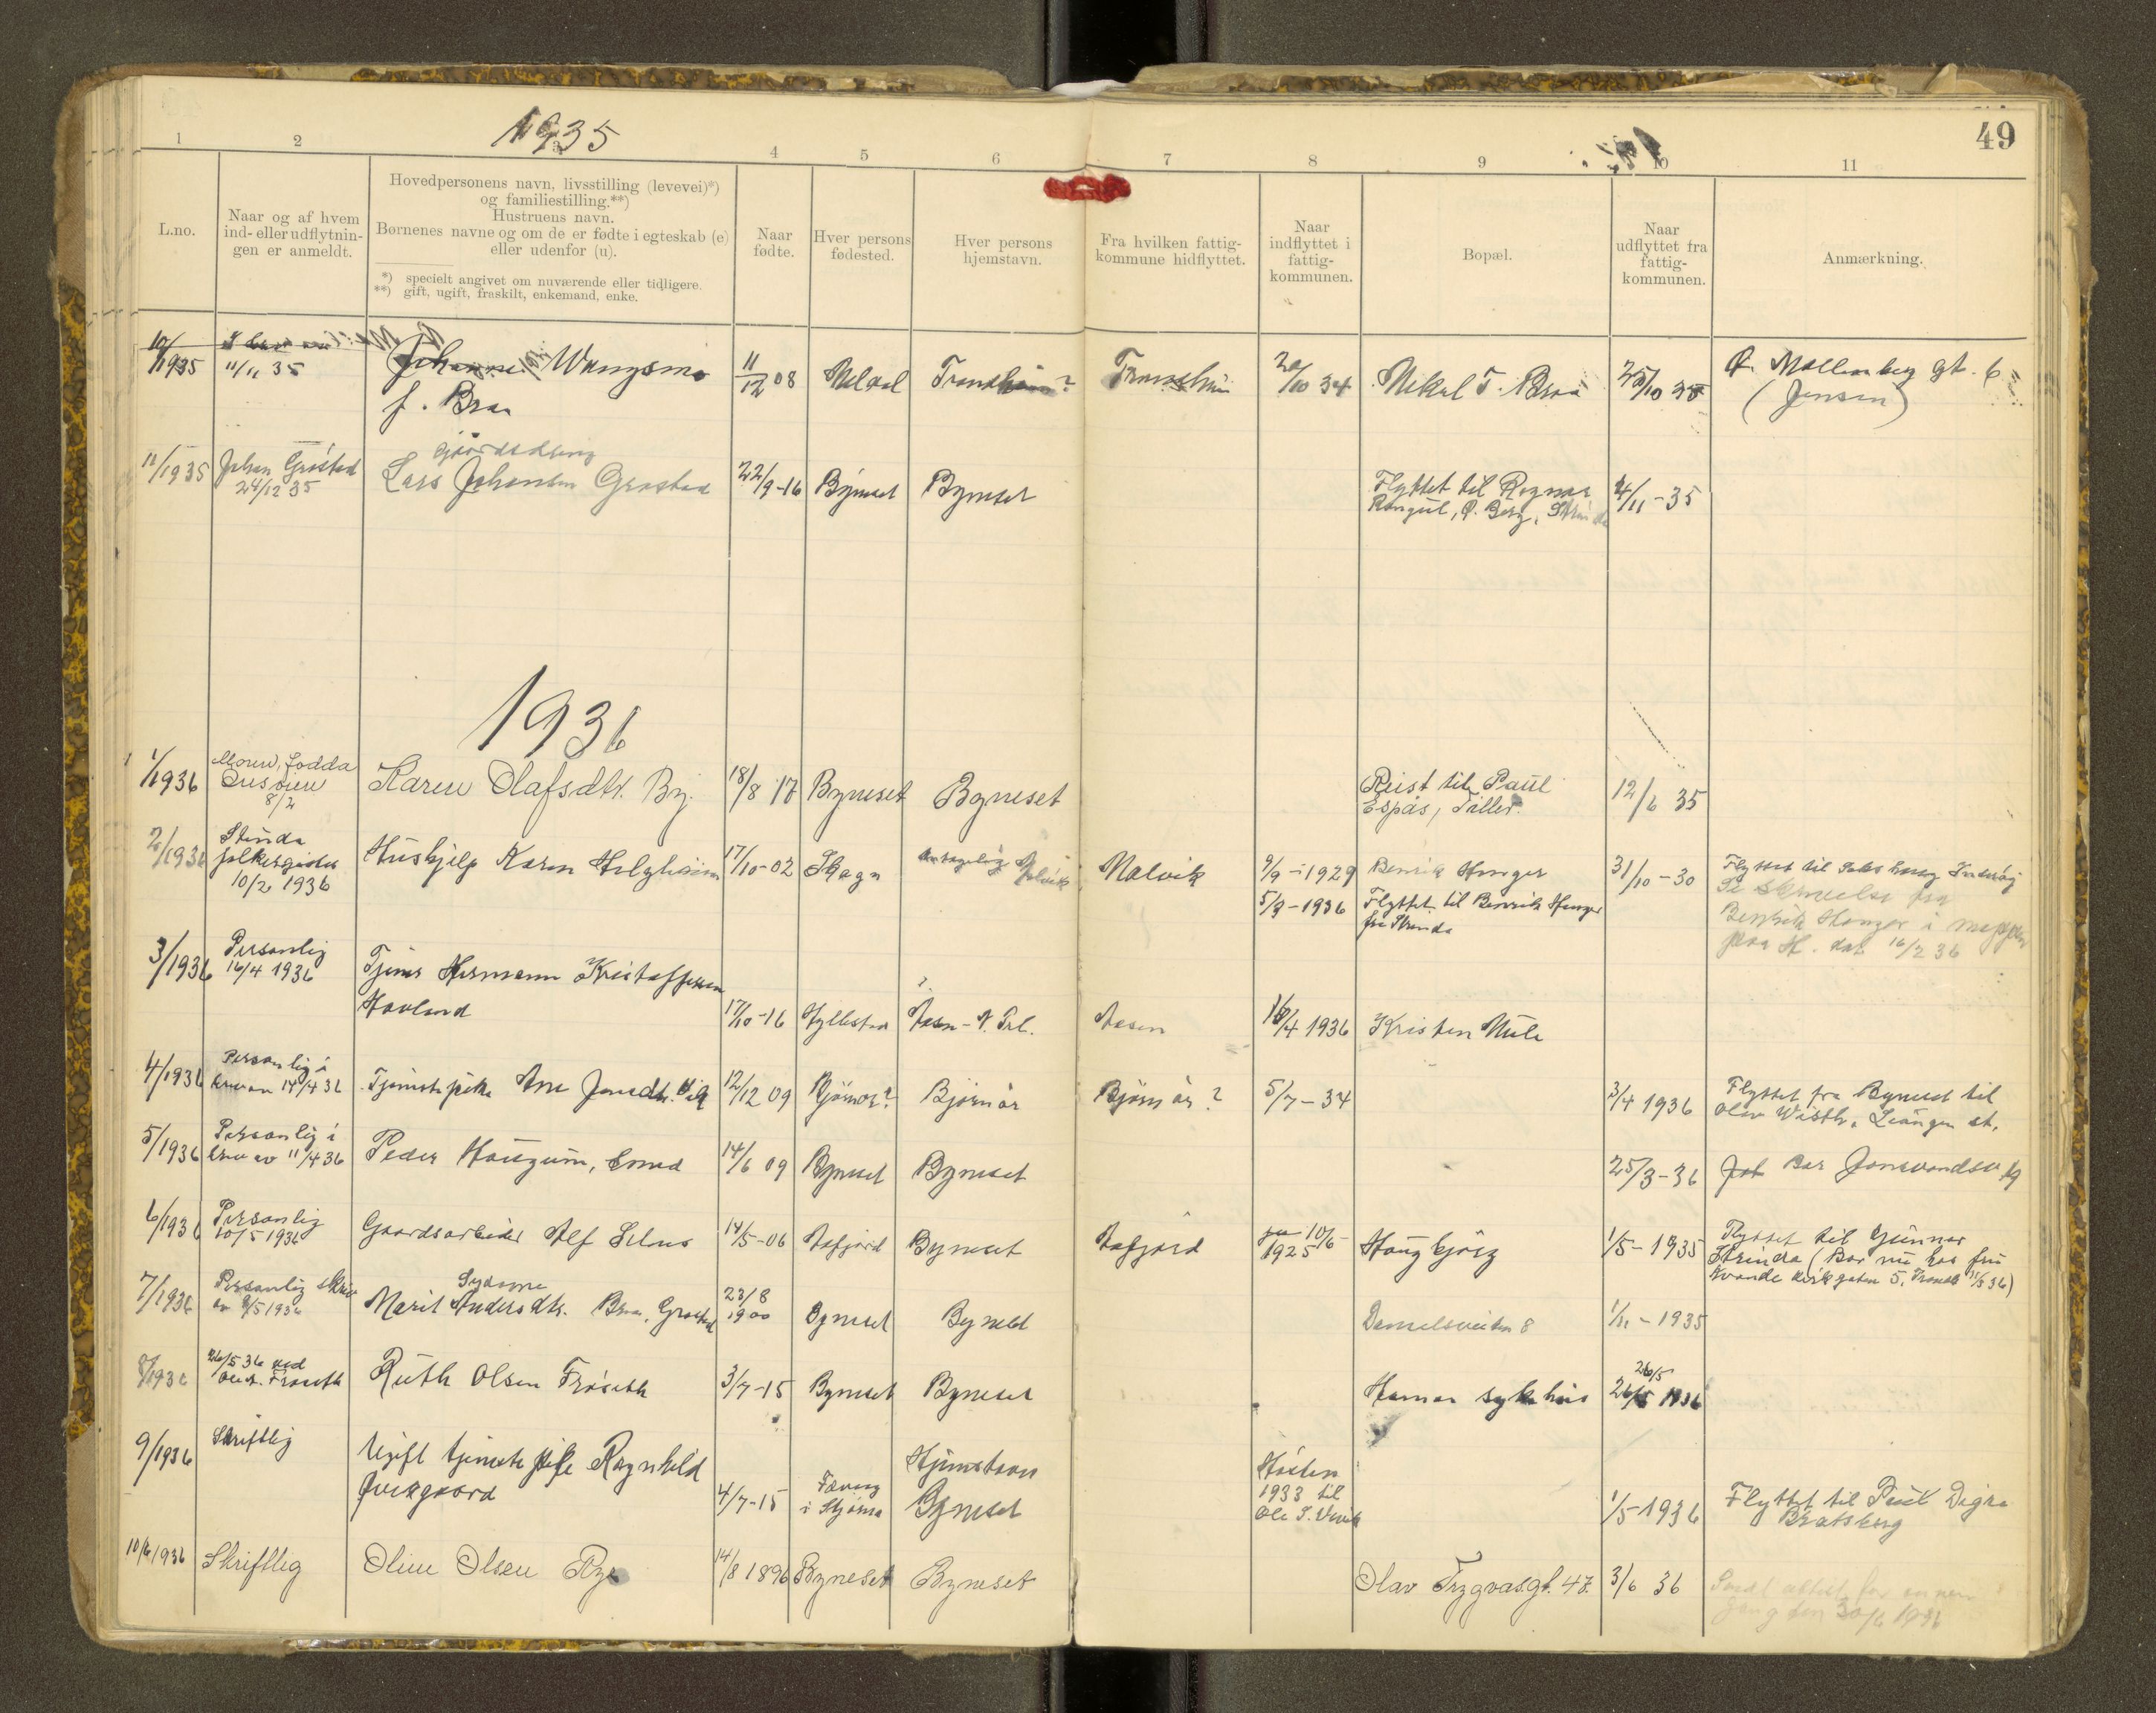 1935
49
1 2 3 4 5 6 7 8 9 10 11
L.no.
Naar og af hvem
ind- eller udflytnin-
gen er anmeldt.
Hovedpersonens navn, livsstilling (levevei)*)
og familiestilling.**)
Hustruens navn.
Børnenes navne og om de er fødte i egteskab (e)
eller udenfor (u).
*) specielt angivet om nuværende eller tidligere.
**) gift, ugift, fraskilt, enkemand, enke.
Naar
fødte.
Hver persons
fødested.
Hver persons
hjemstavn.
Fra hvilken fattig-
kommune hidflyttet.
Naar
indflyttet i
fattig-
kommunen.
Bopæl.
Naar
udflyttet fra
fattig-
kommunen.
Anmærkning.
10/1935 11/11 35 Wangsmo 11/12 08 Meldal Trondheim? Trondheim 20/10 34 Nekol T. Braa 25/10 35 Ø. Møllenberg gt. 6
f. Braa (Jensen)
gaardsdreng
11/1935 Johan Grøstad Lars Johansen Grøstad 22/9-16 Byneset Byneset Flyttet til Ragnar 4/11-35
24/12 35 Ø. Berg, Strinda
1936
1/1936 8/2 Karen Olafsdtr. By. 18/8 17 Byneset Byneset Reist til Paul 12/6 35
Espås, Tiller.
2/1936 Strinda Hushjelp Karen 17/10-02 Skogn Malvik Malvik 9/9-1929 Benrik Hanger 31/10-30 Flyttet til
folkeregister 5/3-1936 Flyttet til Benrik Hanger
10/2 1936 fra Strinda
Se skrivelse fra
Benrik Hanger i mappen
H. dat 16/2 36
3/1936 Personlig Tjener Hermann Kristoffersen
16/4 1936
Hovland 17/10-16 Hyllestad ? Aasen - N. Trl. Aasen 16/4 1936 Kristen Mule
4/1936 Personlig i Tjenestepike Ane Jonsdtr. 12/12 09 Bjørnør? Bjørnør Bjørnør? 5/7-34 3/4 1936 Flyttet fra Byneset til
brev av 14/4 36 Olav Wisth, Leangen st.
5/1936 Personlig i Peder Haugum, 14/6 09 Byneset Byneset 25/3-36 Bor Jonsvandsv. 49
brev av 11/4 36
6/1936 Personlig Gaardsarbeider Alf Selnes 14/5-06 Aafjord Byneset Aafjord 10/6- 1925 Haugbjørg 1/5-1935 Flyttet til Gunnar
10/5 1936 Strinda (Bor nu hos fru
Kirkegaten 5,
7/1936 Personlig skriv. Sydame 23/8
av 9/5 1936 Marit Andersdtr. Braa, Grøstad 1900 Byneset Byneset 8 1/11-1935
8/1936 26/5 36 ved Ruth Olsen Frøseth 3/7-15 Byneset Byneset Hamar sykehus 26/5
Frøseth 26/5 1936
9/1936 Skriftlig Ugift tjenestepike Ragnhild Hjemstavn Høsten
Øvergaard 4/7-15 i Stjørna Byneset 1933 til 1/5-1936 Flyttet til Paul Digre
Bratsberg
10/6 1936 Skriftlig Oline Olsen Rye 14/8 1896 Byneset Byneset Olav Trygvas.gt. 47. 3/6 36
gang den 30/6 1936